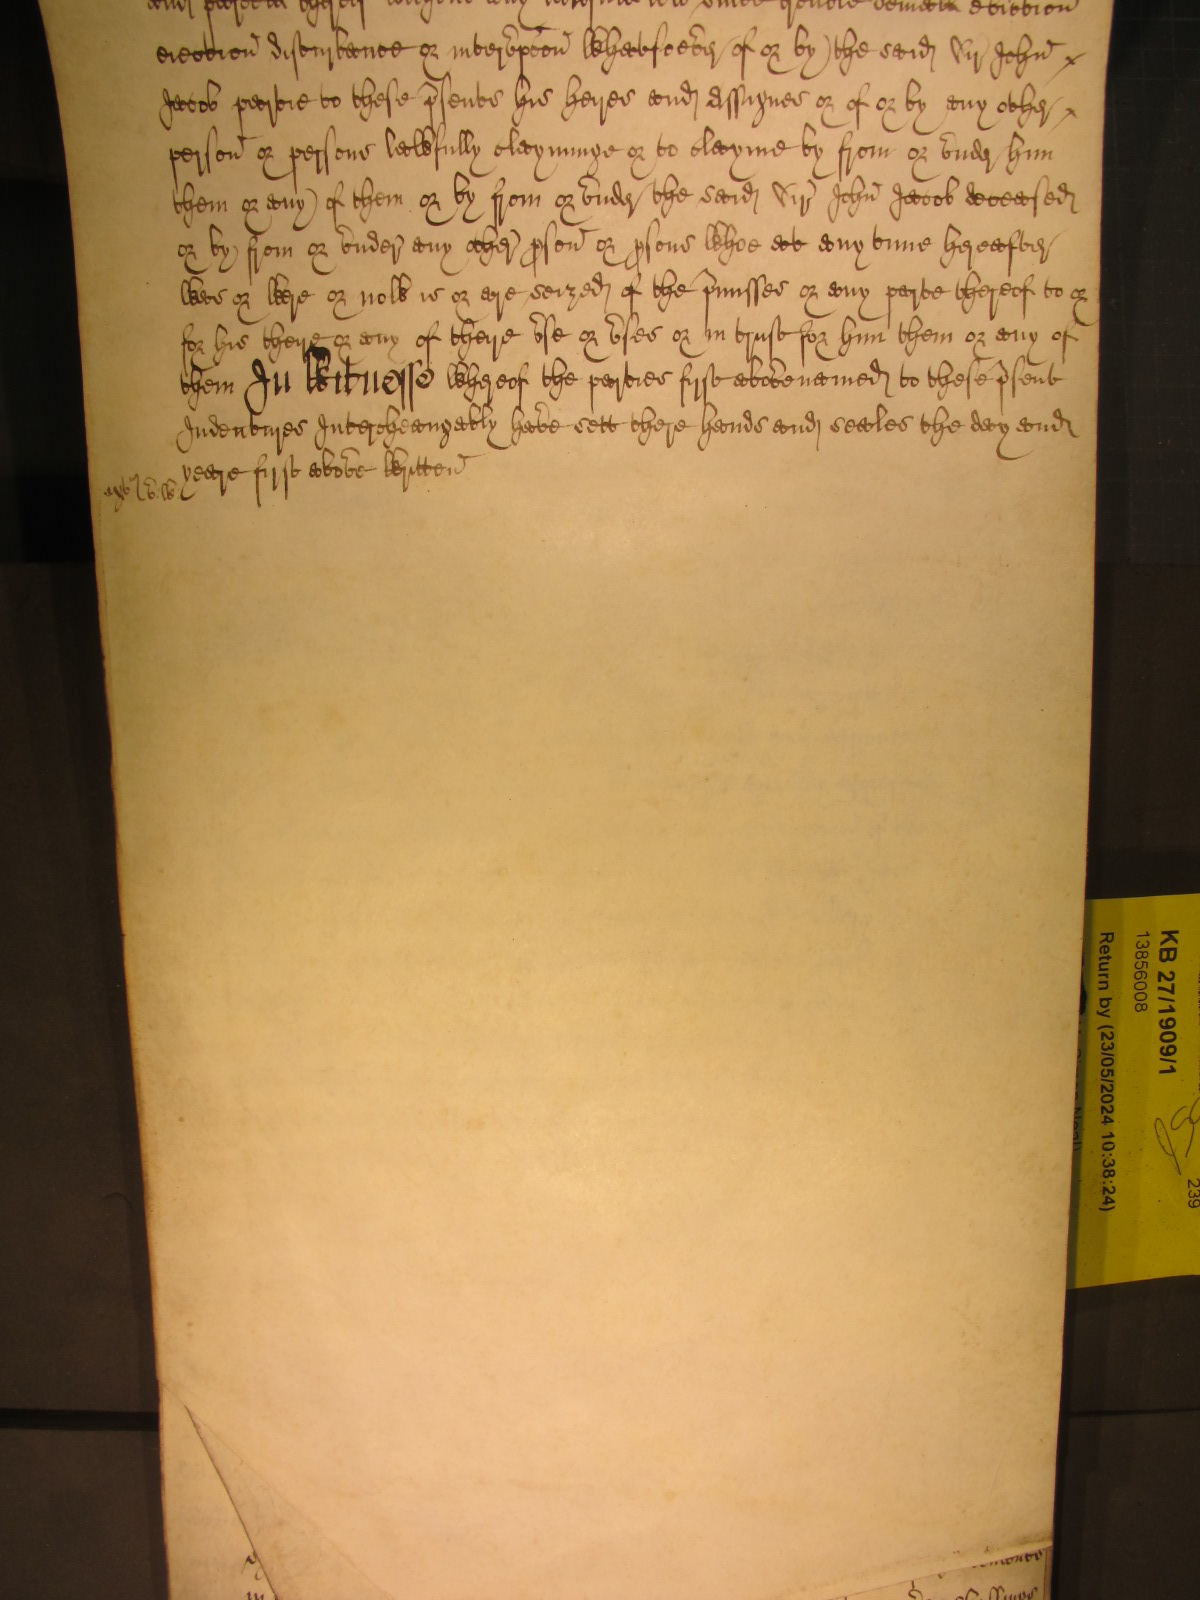 eviction
eiection disturbance or interupcon whatsoever of or by the said Sir John
Jacob partie to these psents his heires and Assignes or of or by any other
person or persons lawfully clayminge or to clayme by from or under him
them or any of them or by from or under the said Sir John Jacob deceased
or by from or under any other pson or psons whoe att any time hereafter
was or were or now is or are seized of the pmisses or any parte thereof to or
for his theire or any of theire use or uses or in trust for him them or any of
them In Witnesse whereof the parties first abovenamed to these psent
Indentures Interchangably have sett there hands and seales the day and
yeare first above written
KB 27/1909/1
13856008
Return by (23/05/2024 10:38:24)
239